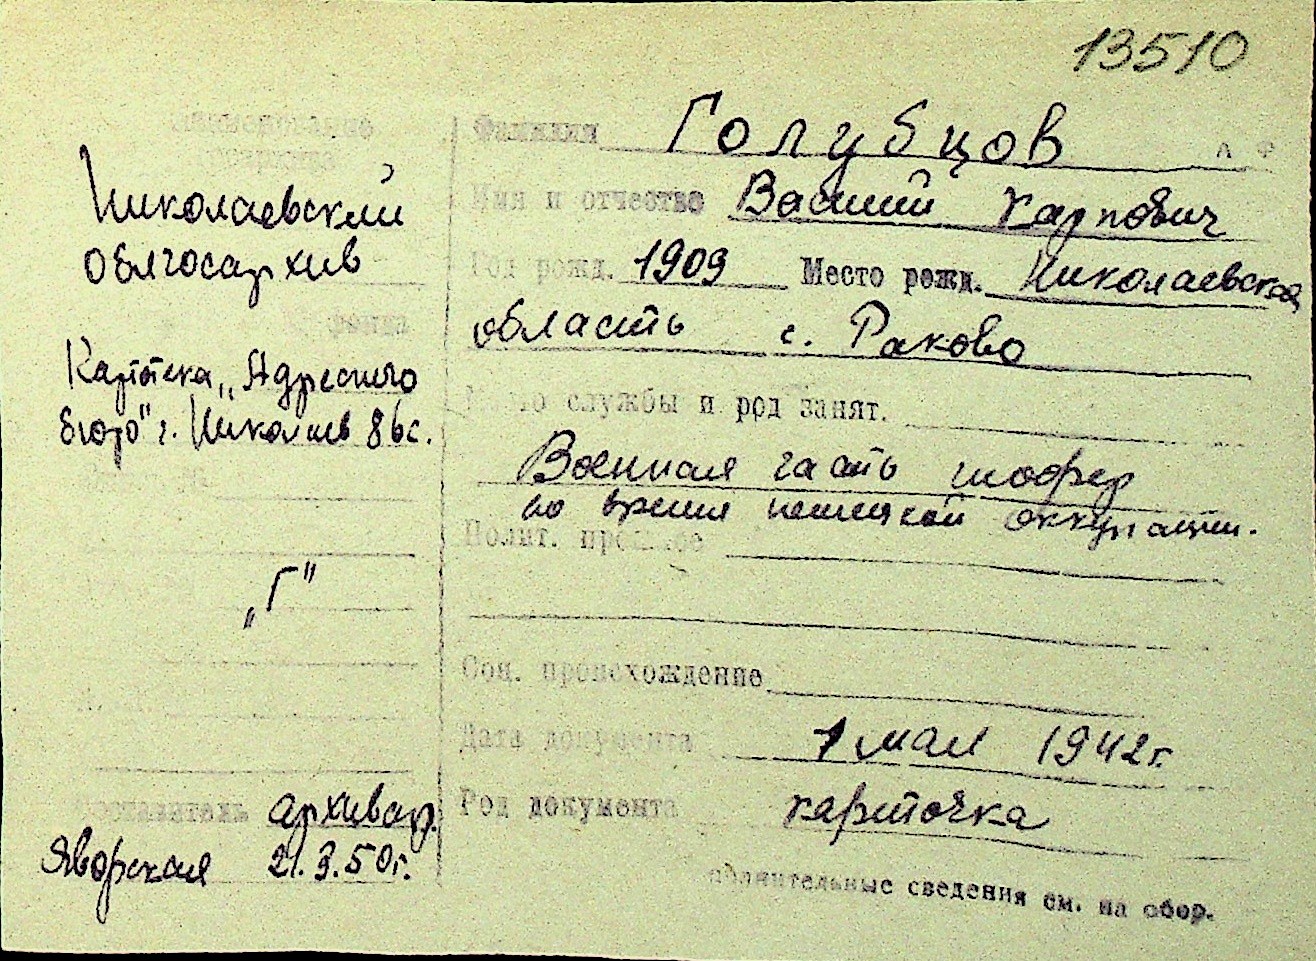 13510
Наименование
архива
Николаевский
облгосархив
фонда
Картотека „Адресного
бюро" г. Николаев 8 бс.
„Г"
Составитель архивар.
Яворская 21.3.50г.
Фамилия Голубцов
Имя и отчество Василий Карпович
Год рожд. 1909 Место рожд. Николаевская
область с. Раково
Место службы и род занят.
Военная часть шофер
во время немецкой оккупации.
Полит. прошлое
Соц. происхождение
Дата документа 1 мая 1942г.
Род документа карточка
сведения см. на обор.